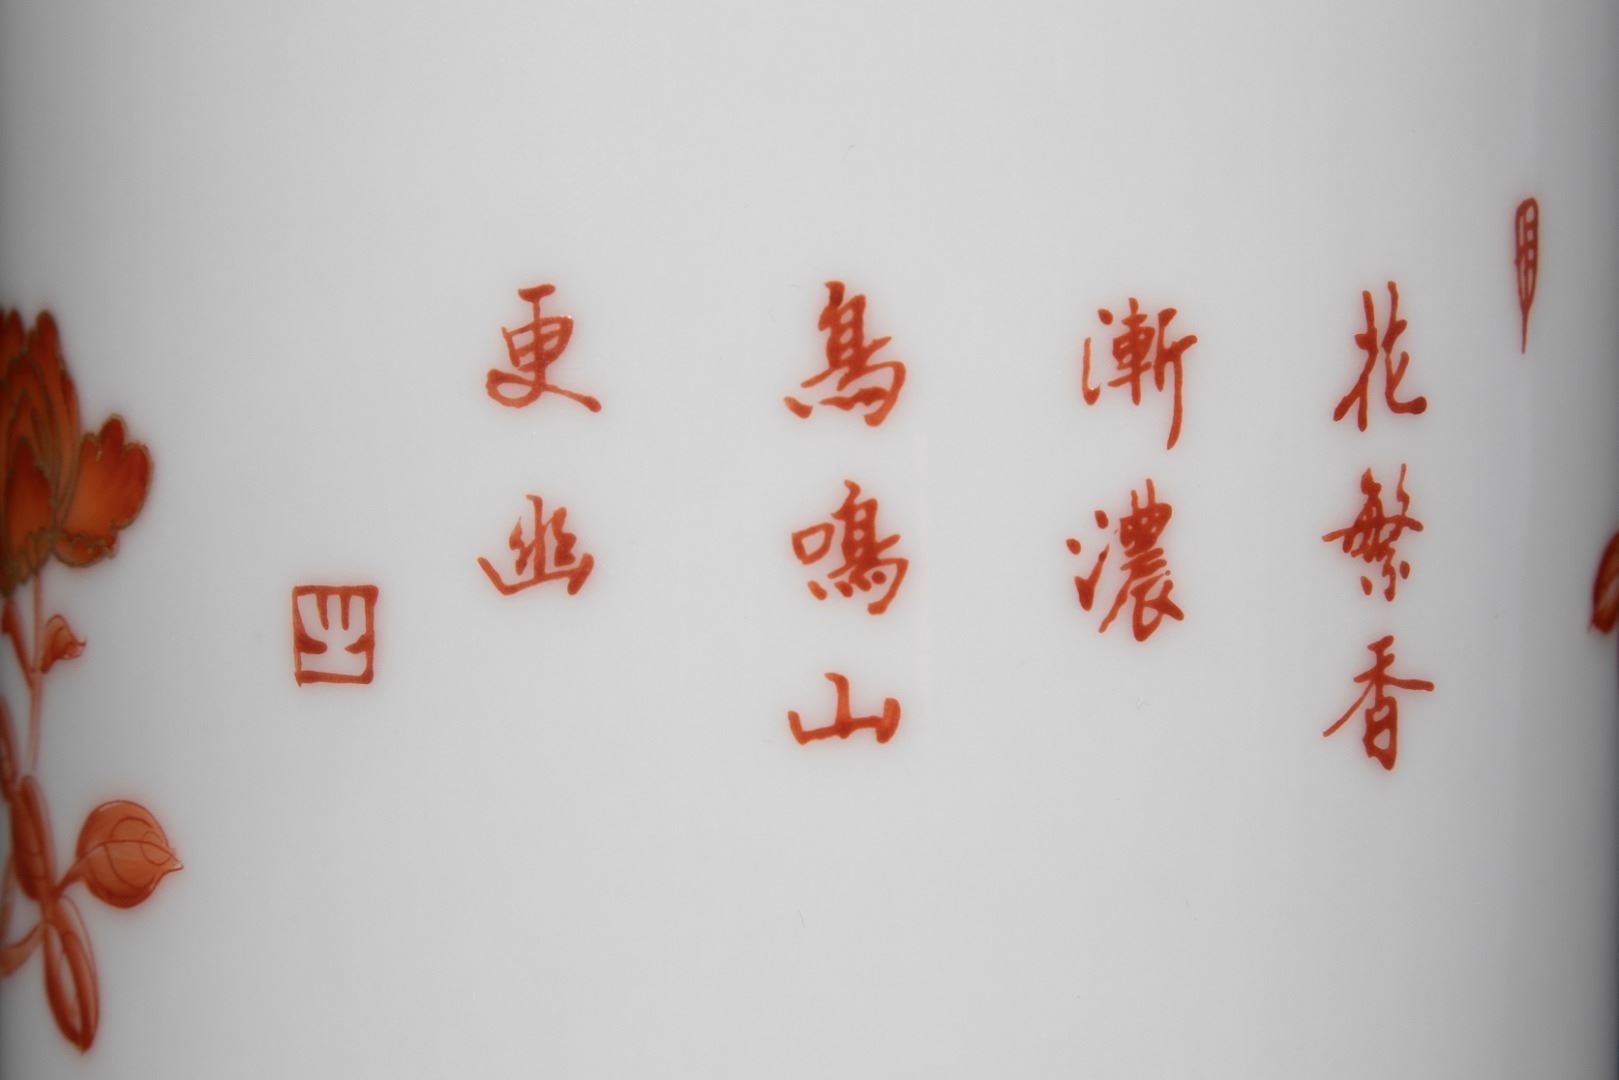 花繁香
漸濃
鳥鳴山
更幽